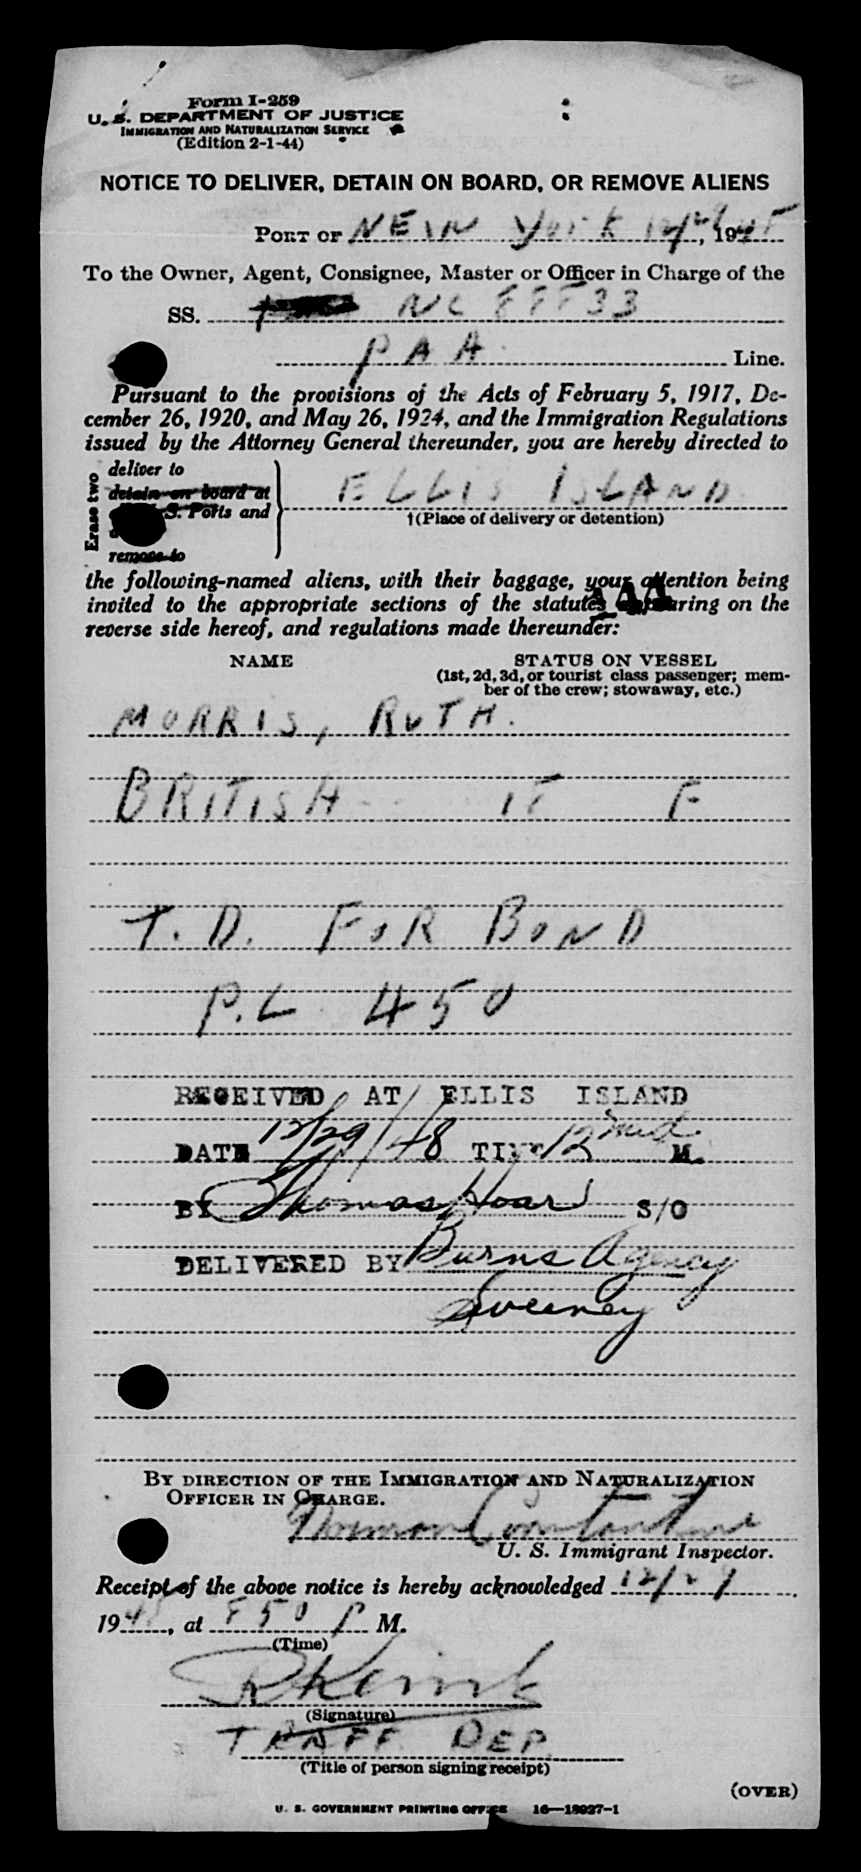 Form I-259
U. S. DEPARTMENT OF JUSTICE
IMMIGRATION AND NATURALIZATION SERVICE
(Edition 2-1-44)
NOTICE TO DELIVER, DETAIN ON BOARD, OR REMOVE ALIENS
PORT OF NEW York 12/29, 1948
To the Owner, Agent, Consignee, Master or Officer in Charge of the
SS. NC 88833
PAA Line.
Pursuant to the provisions of the Acts of February 5, 1917, De-
cember 26, 1920, and May 26, 1924, and the Immigration Regulations
issued by the Attorney General thereunder, you are hereby directed to
Erase two
deliver to
detain on board at
S. Ports and
remove to
ELLIS ISLAND
†(Place of delivery or detention)
the following-named aliens, with their baggage, your attention being
invited to the appropriate sections of the statutes appearing on the
reverse side hereof, and regulations made thereunder:
NAME STATUS ON VESSEL
(1st, 2d, 3d, or tourist class passenger; mem-
ber of the crew; stowaway, etc.)
MORRIS, RUTH.
BRITISH 18 F
T. D. FOR BOND
P.L 450
RECEIVED AT ELLIS ISLAND
DATE 12/29/48 TIME 12 mid M.
BY Thomas Hoar S/O
DELIVERED BY Burns Agency
Sweeney
BY DIRECTION OF THE IMMIGRATION AND NATURALIZATION
OFFICER IN CHARGE.
Norman
U. S. Immigrant Inspector.
Receipt of the above notice is hereby acknowledged 12/29
1948, at 850 P M.
(Time)
(Signature)
TRAFF DEP.
(Title of person signing receipt)
(OVER)
U. S. GOVERNMENT PRINTING OFFICE 16—18927-1